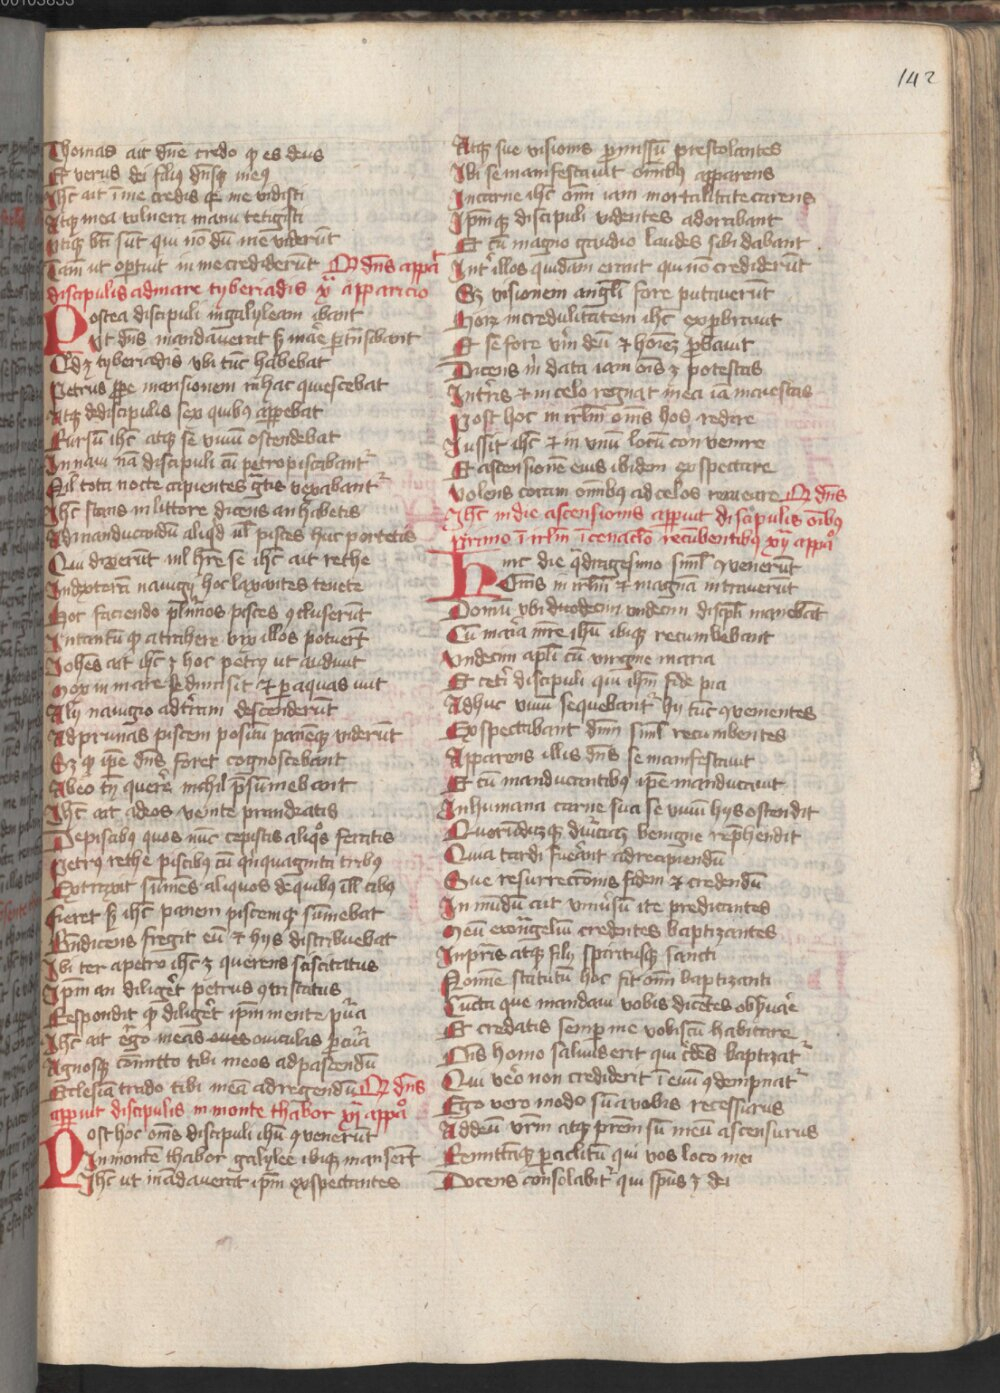 142
Thomas ait dne credo q es deus
Et verus dei filiꝰ dnsq meꝰ
Ihc ait i me credis q me vidisti
Atq mea vulnera manu tetigisti
Utiq bti sut qui no du me viderut
Tam ut oportuit in me crediderut Qr dns appart
discipulis ad mare tyberiadis xͣ apparicio
Postea discipuli in galyleam ibant
Ut dns mandaverat
tyberiadis ubi tuc habebat
Petrus mansionem in hac quiescebat
Atq de discipulis sex quibꝰ apparebat
Rursu ihc atq se vivu ostendebat
In navi na discipuli cu petro piscabant
Nil tota nocte capientes gtis vexabant
Ihc stans in littore dicens an habetis
Ad manducandu aliqd ul pisces huc portetis
Qui dixerut nil hre se ihc ait rethe
In dextera navigij hoc laxantes tenete
Hoc faciendo plimos pisces ꝯcluserut
In tantu q attrahere vix illos potuert
Iohes ait ihc ꝫ hoc petrꝰ ut audivit
Mox in mare se dimisit et p aquas ivit
Alij navigio ad tram descenderut
Ad prunas piscem positu paneq viderut
Eꝫ q ipe dns foret cognoscebant
Ab eo tn querere nichil psumebant
Ihc ait ad eos venite prandeatis
De piscibꝰ quos nuc cepistis aliqos feratis
Petrꝰ rethe piscibꝰ cu quiquaginta tribꝰ
Extraxit sumes aliquos de quibꝰ ill cibꝰ
Fieret ꝫ ihc panem piscemq sumebat
Bndicens fregit eu et hijs distribuebat
Ibi ter a petro ihc ꝫ querens sciscitatus
Ipm an diliget petrus ꝯtristatus
Respondit q diliget ipm mente pura
Ihc ait ergo meas oves oviculas pcura
Agnosq comitto tibi meos ad pascendu
Ecclesia trado tibi mea ad regendu Qr dns
apparuit discipulis in monte thabor xj appaᵒ
Post hoc oms discipuli ihu ꝯvenerut
In monte thabor galylee ibiq manseret
Ihc ut madaverat ipm exspectantes
Atq sue visionis pmissu prestolantes
Ibi se manifestavit omibꝰ apparens
In carne ihc omi iam mortalitate carens
Ipmq discipuli videntes adorabant
Et cu magno gaudio laudes sibi dabant
Int illos quidam erant qui no crediderut
Sꝫ visionem angli fore putaverut
Horꝫ incredulitatem ihc exprbravit
Et se fore veru deu et hoiez pbavit
Dicens m data iam ois ꝫ potestas
In tris et in celo regnat mea ia maiestas
Post hoc in irlm oms hos redire
Iussit ihc et in unu locu convenire
Et ascensione eius ibidem exspectare
Volens coram omibꝰ ad celos remeare Qr dns
Ihc in die ascensionis apparuit discipulis oibꝰ
primo i irlm i cenaclo recumbentibꝰ xij appaᵒ
Hinc die qdragesimo siml ꝯvenerut
Oms in irlm et magna intraverut
Domu ubi duodecim undecim discpli manebat
Cu maria mre ihu ibiq recumbebant
Undecim apli cu virgine maria
Et ceti discipuli qui ihm fide pia
Adhuc vivu sequebant hij tuc ꝯvenientes
Exspectabant dnm siml recumbentes
Apparens illis dns se manifestavit
Et cu manducantibꝰ ipe manducavit
In humana carne sua se vivu hijs ostendit
benigne rephendit
Quia tardi fuerant ad recapiendu
Sue resurrectionis fidem et credendu
In mundu ait univsu ite predicantes
Meu ewangeliu credentes baptizantes
In pris atq filij spiritusq sancti
Nomine statutu hoc sit omi baptizanti
Cuncta que mandavi vobis dicetes obsvare
Et credatis semp me vobiscu habitare
Ois homo salvus erit qui cdes baptizat
Qui vero non crediderit i evu ꝯdempnat
Ego vero modo su a vobis recessurus
Ad deu vrm atq prem su meu ascensurus
Remittaq paclitu qui vos loco mei
Docens consolabit qui spus ꝫ dei